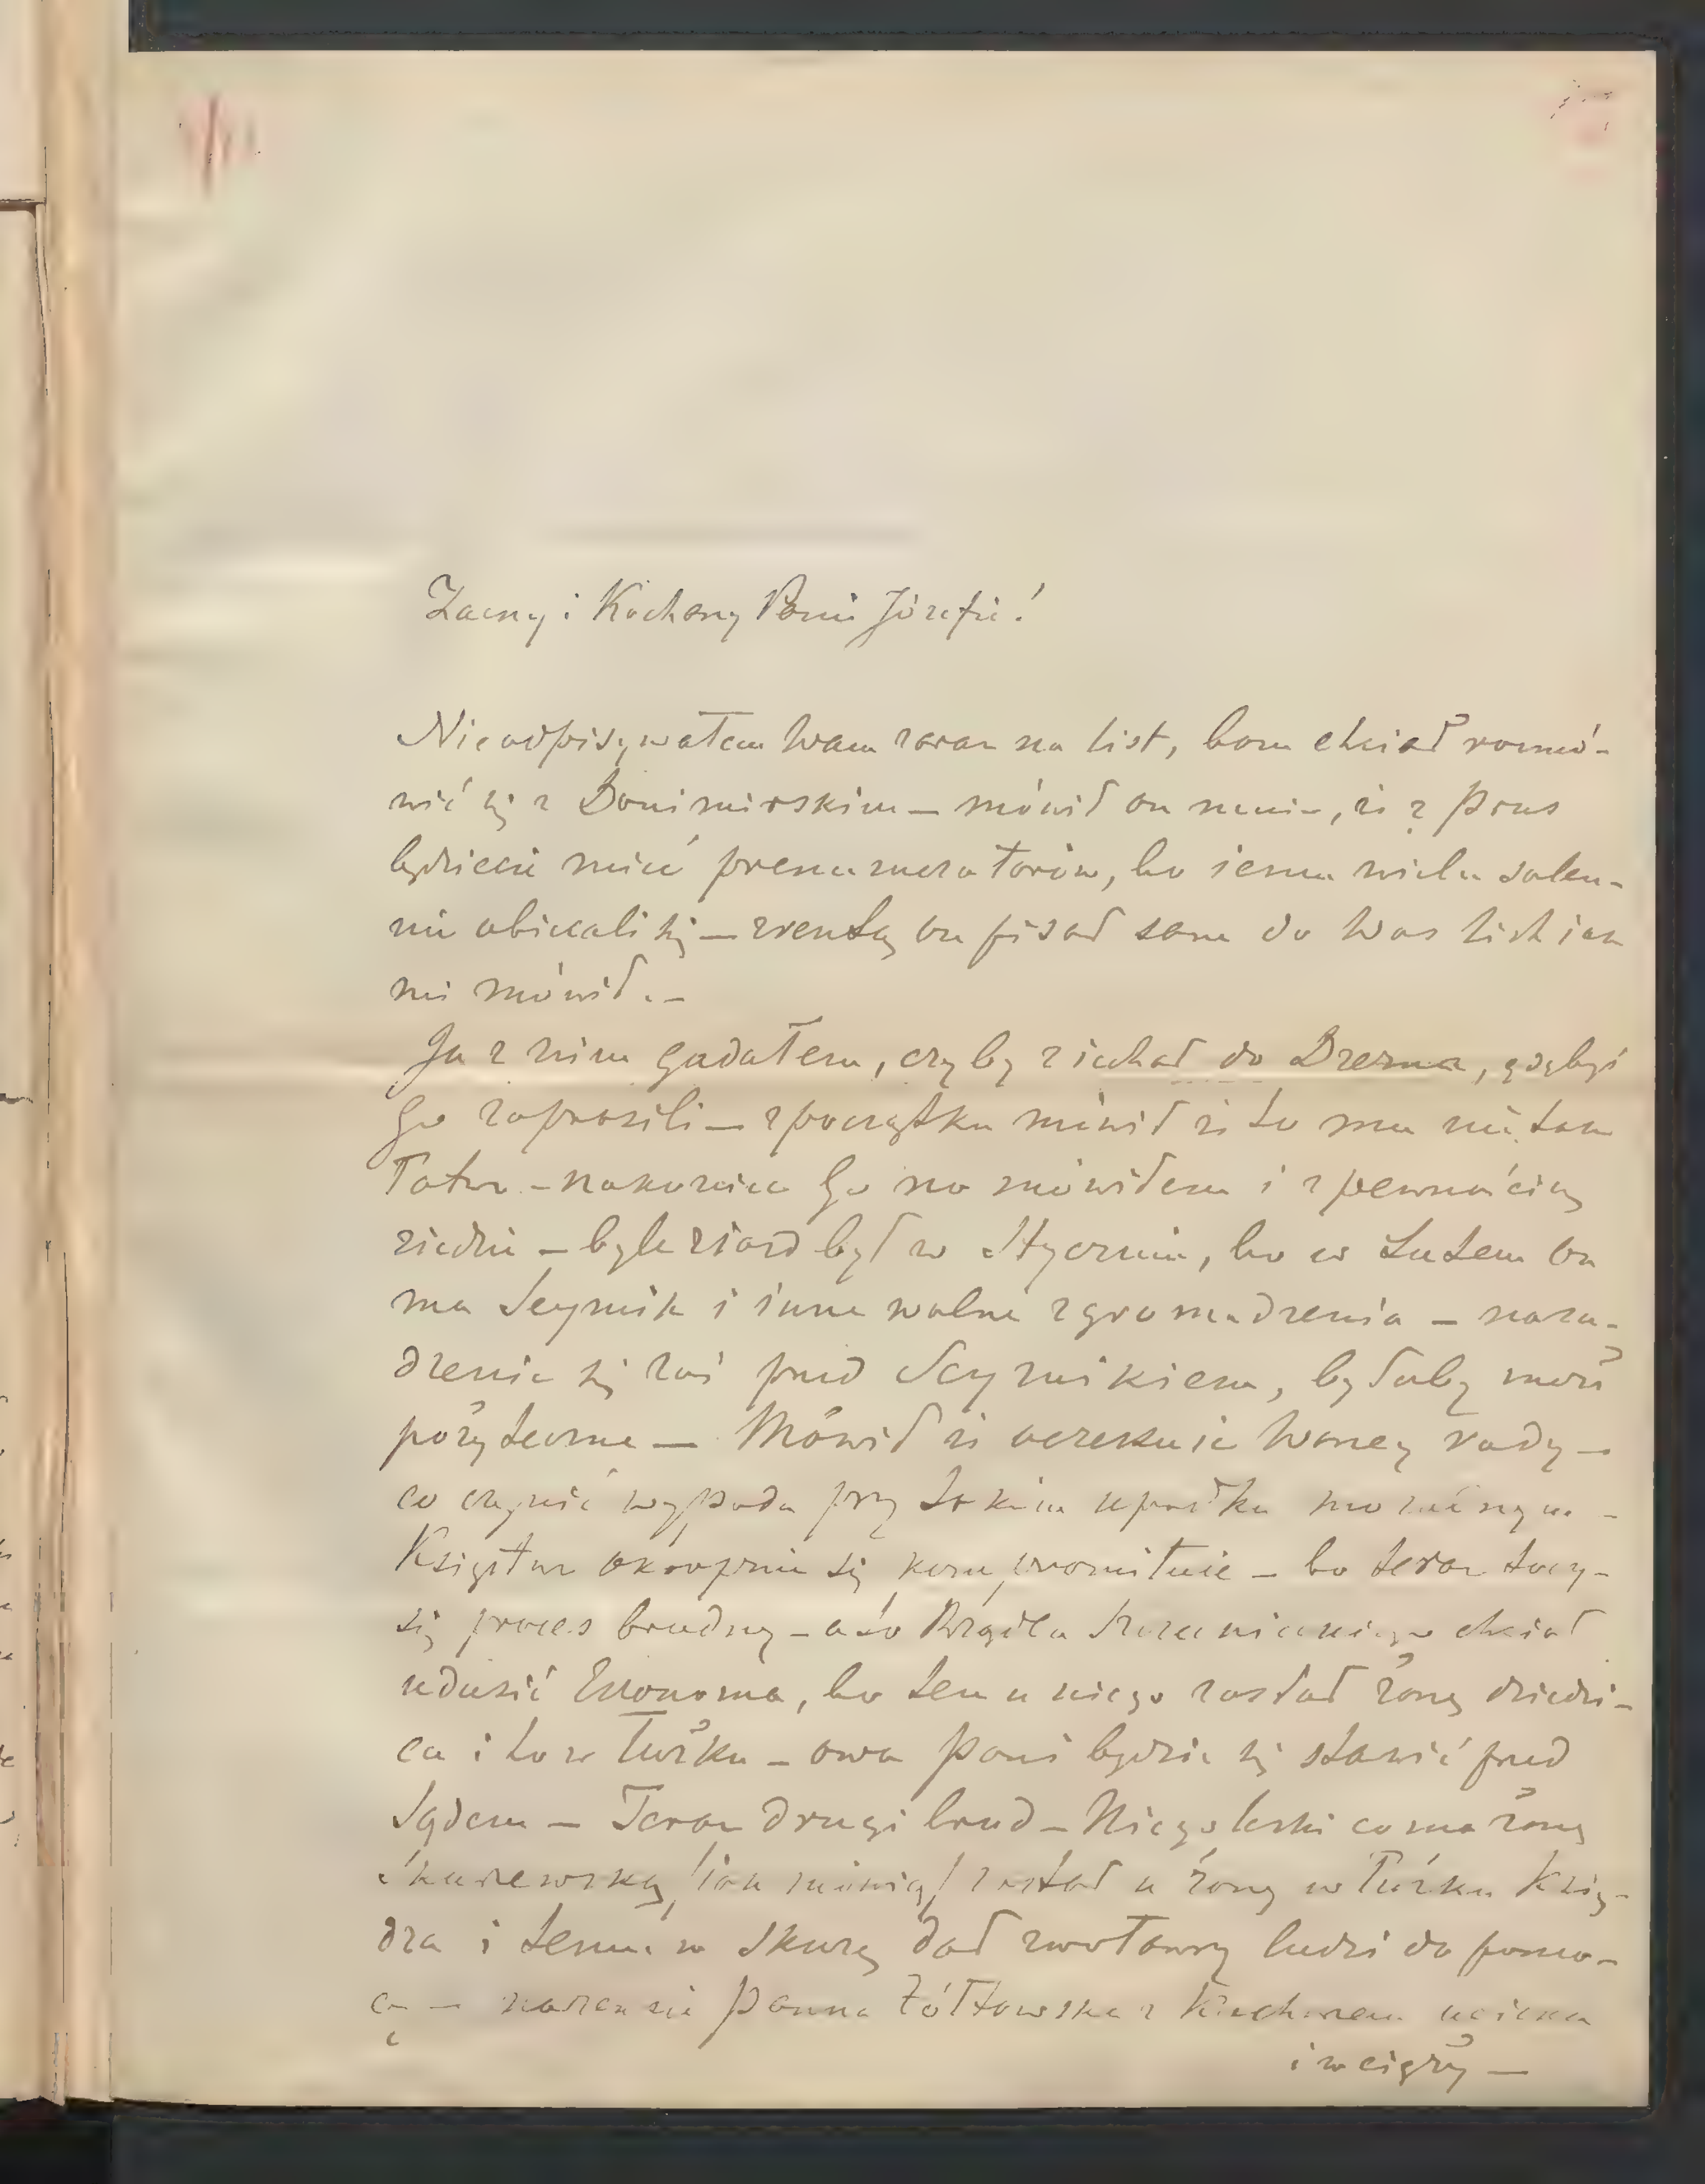 Zacny i Kochany Panie Józefie!
Nieodpisywałem Wam zaraz na list, bom chciał rozmó-
wić się z Donimirskim – mówił on mnie, że z Prus
będziecie mieć prenumeratorów, bo jemu wielu solen-
nie obiecali się – zresztą on pisał sam do Was list jak
mi mówił. –
Ja z nim gadałem, czyby zjechał do Drezna, gdybyś
go zaprosili – z początku mówił że to mu nie tak
łatwo – nakoniec go na mówiłem i z pewnością
zjedzie – byle zjazd był w Styczniu, bo w Lutem on
ma Seymik i inne walne zgromadzenia – nara-
dzenie się zaś przed Seymikiem, byłoby może
pożyteczne – Mówił że oczekuje Waszey rady –
co czynić wypada przy takim upadku moralnym –
Księstwo okropnie się kompromituje – bo teraz toczy
się proces brudny – a to Rządca chciał
udusić Ekonoma, bo ten u niego zastał żonę dziedzi-
ca i to w łóżku – owa pani będzie się stawić przed
Sądem – Teraz drugi brud – Niegolewski co ma żonę
/jak mówią/ zastał u żony w łóżku Księ-
dza i temu w skurę dał zwoławszy ludzi do pomo-
cy – nareszcie panna Żółtowska z Kucharzem ucieka
i w ciąży –